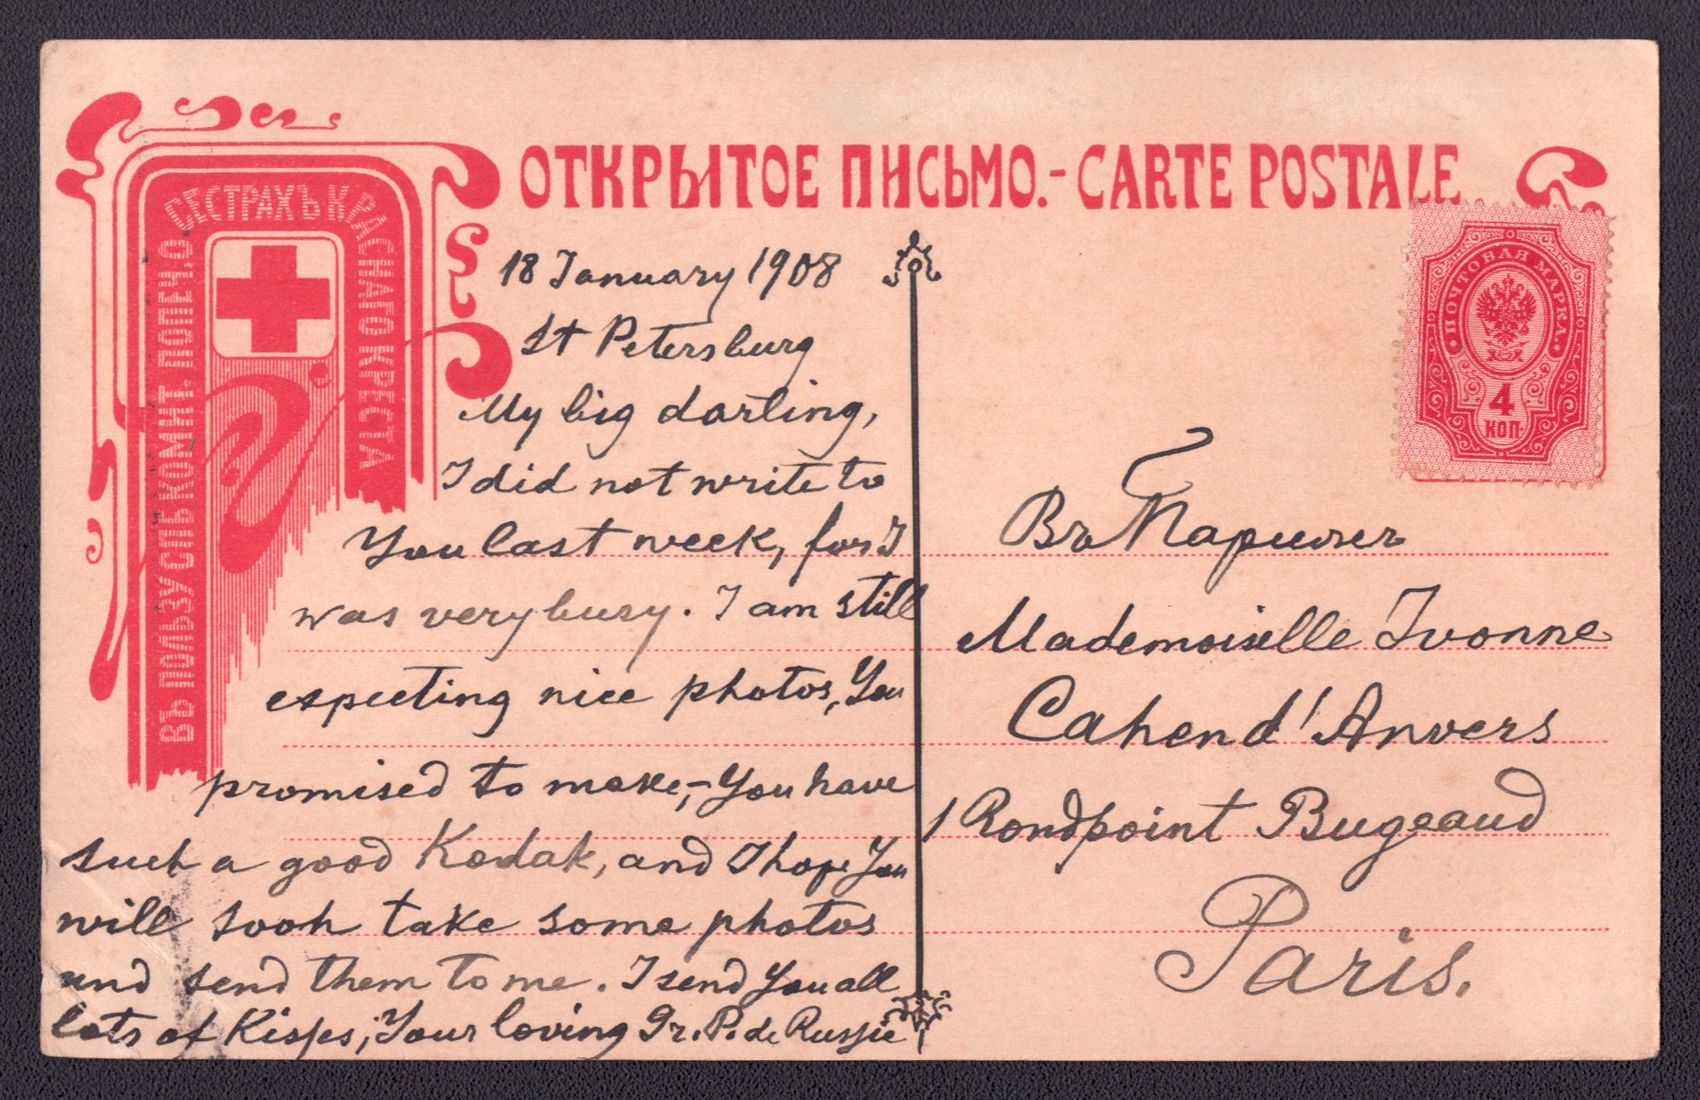 ОТКРЫТОЕ ПИСЬМО.-CARTE POSTALE
ВЪ ПОЛЬЗУ С.ПЕТ. КОМИТ. ПОПЕЧ. О СЕСТРАХЪ КРАСНАГО КРЕСТА
ПОЧТОВАЯ МАРКА
4
КОП.
18 January 1908
St Petersburg
My big darling,
I did not write to
You last week, for I
was very busy. I am still
expecting nice photos, You
promised to make,- You have
such a good Kodak, and I hope You
will sooh take some photos
und send them to me. I send You all
lots of Kisses, Your loving Gr. P. de Russie
Въ Парижъ
Mademoiselle Ivonne
Cahend'Anvers
1 Rondpoint Bugeaud
Paris.